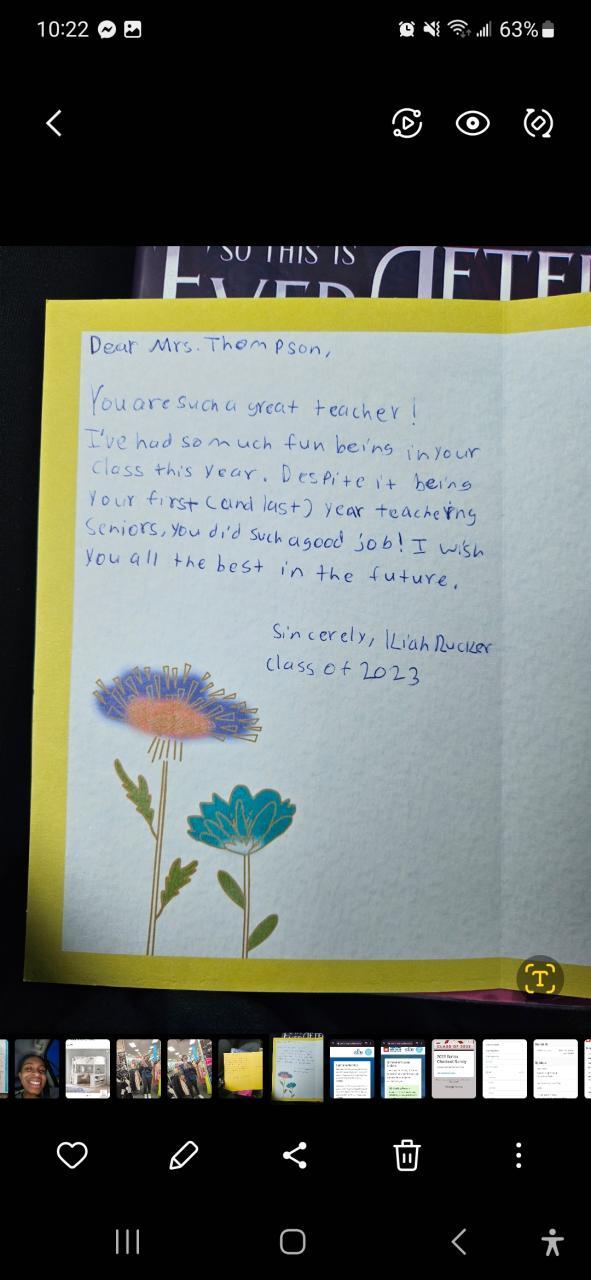 10:22 63%
SO THIS IS
EVER AFTE
Dear Mrs. Thompson,
You are such a great teacher!
I've had so much fun being in your
class this year. Despite it being
your first (and last) year teacheing
Seniors, you did such a good job! I wish
you all the best in the future.
Sincerely, Kiah Rucker
class of 2023
T
CLASS OF 2023